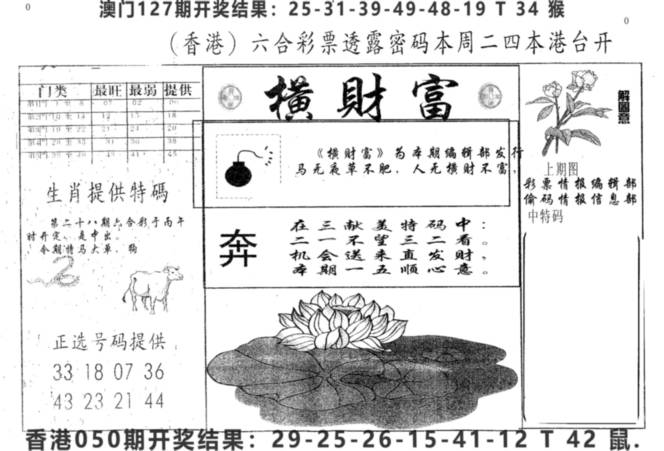 澳门127期开奖结果：25-31-39-49-48-19 T 34 猴
0
0
（香港）六合彩票透露密码本周二四本港台开
门类 最旺 最弱 提供
横财富
《横财富》为本期编辑部发行
马无夜草不肥，人无横财不富。
解圖意
上期图
彩票情报编辑部
偷码情报信息部
中特码
生肖提供特碼
第二十八期六合彩于丙午
时开定、是申出。
今期特马大单 狗
奔
在三献美特码中：
二一不望三二看。
机会送来直发财，
本期一五顺心意。
正选号码提供
33 18 07 36
43 23 21 44
香港050期开奖结果：29-25-26-15-41-12 T 42 鼠.